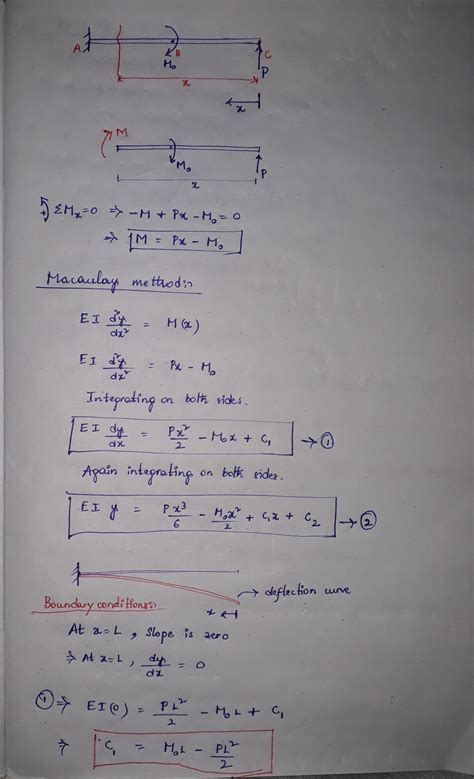 A B C
M₀ P
x
x
M
M₀ P
x
ΣMₓ=0 ⇒ -M + Px - M₀ = 0
⇒ M = Px - M₀
Macaulay method:-
EI d²y/dx² = M(x)
EI d²y/dx² = Px - M₀
Integrating on both sides.
EI dy/dx = Px²/2 - M₀x + C₁ → ①
Again integrating on both sides.
EI y = Px³/6 - M₀x²/2 + C₁x + C₂ → ②
→ deflection curve
x
Boundary conditions:-
At x=L, Slope is zero
⇒ At x=L, dy/dx = 0
① ⇒ EI(0) = PL²/2 - M₀L + C₁
⇒ C₁ = M₀L - PL²/2